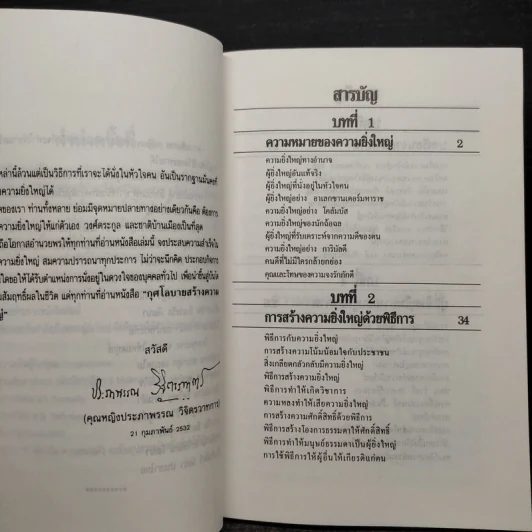 หล่านี้ล้วนแต่เป็นวิธีการที่เราจะได้นั่งในหัวใจคน อันเป็นรากฐานมั่นคงที่
ความยิ่งใหญ่ได้
ของเรา ท่านทั้งหลาย ย่อมมีจุดหมายปลายทางอย่างเดียวกันคือ ต้องการ
ความยิ่งใหญ่ให้แก่ตัวเอง วงศ์ตระกูล และชาติบ้านเมืองเป็นที่สุด
ถือโอกาสอำนวยพรให้ทุกท่านที่อ่านหนังสือเล่มนี้ จงประสบความสำเร็จใน
ความยิ่งใหญ่ สมความปรารถนาทุกประการ ไม่ว่าจะนึกคิด ประกอบกิจการ
ใดขอให้ได้รับตำแหน่งการนั่งอยู่ในดวงใจของบุคคลทั่วไป เพื่อนำขึ้นสู่บันได
สัมฤทธิ์ผลในชีวิต แด่ทุกท่านที่อ่านหนังสือ "กุศโลบายสร้างความ
ญ่"
สวัสดี
(คุณหญิงประภาพรรณ วิจิตรวาทการ)
21 กุมภาพันธ์ 2532
สารบัญ
บทที่ 1
ความหมายของความยิ่งใหญ่ 2
ความยิ่งใหญ่ทางอำนาจ
ผู้ยิ่งใหญ่อันแท้จริง
ผู้ยิ่งใหญ่ที่นั่งอยู่ในหัวใจคน
ผู้ยิ่งใหญ่อย่าง อาเลกซานเดอร์มหาราช
ความยิ่งใหญ่อย่าง โคลัมบัส
ความยิ่งใหญ่ของนักฉ้อฉล
ผู้ยิ่งใหญ่ที่รับเคราะห์จากความดีของตน
ความยิ่งใหญ่อย่าง การิบัลดี
คนดีที่ไม่มีใครกล้ายกย่อง
คุณและโทษของความจงรักภักดี
บทที่ 2
การสร้างความยิ่งใหญ่ด้วยพิธีการ 34
พิธีการกับความยิ่งใหญ่
การสร้างความโน้มน้อมใจกับประชาชน
สิ่งเกลียดกลัวกลับมีความยิ่งใหญ่
พิธีการสร้างความยิ่งใหญ่
พิธีการทำให้เกิดวิชาการ
ความหลงทำให้เสียความยิ่งใหญ่
การสร้างความศักดิ์สิทธิ์ด้วยพิธีการ
พิธีการสร้างโองการธรรมดาให้ศักดิ์สิทธิ์
พิธีการทำให้มนุษย์ธรรมดาเป็นผู้ยิ่งใหญ่
การใช้พิธีการให้ผู้อื่นให้เกียรติแก่ตน